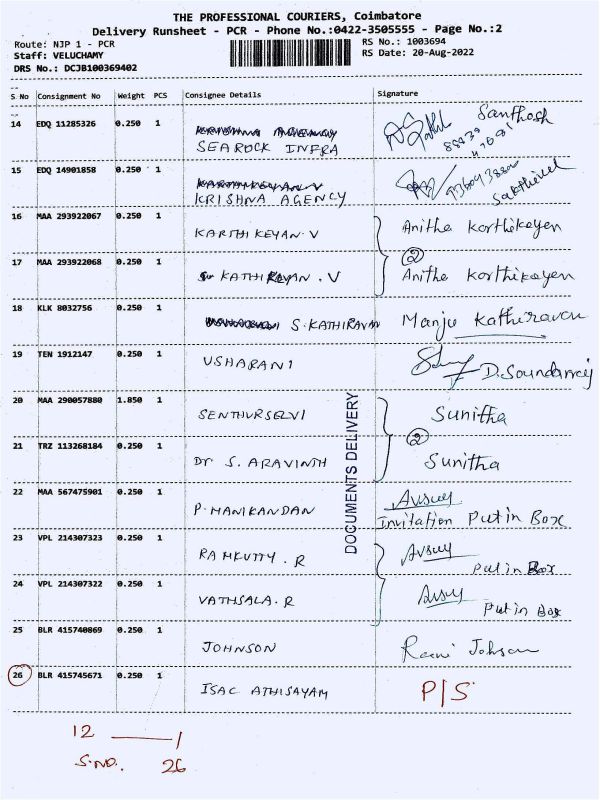 THE PROFESSIONAL COURIERS, Coimbatore
Delivery Runsheet - PCR - Phone No.:0422-3505555 - Page No.:2
Route: NJP 1 - PCR
RS No.: 1003694
Staff: VELUCHAMY
RS Date: 20-Aug-2022
DRS No.: DCJB100369402
S No Consignment No Weight PCS Consignee Details Signature
14 EDQ 11285326 0.250 1 Santhosh
SEAROCK INFRA
15 EDQ 14901858 0.250 1 KARTHIKEYAN V
KRISHNA AGENCY Sakthivel
16 MAA 293922067 0.250 1 KARTHIKEYAN.V Anitha Karthikeyen
17 MAA 293922068 0.250 1 KATHIKEYAN.V ② Anitha Karthikeyen
18 KLK 8032756 0.250 1 S.KATHIRAVAN Manju Kathiravan
19 TEN 1912147 0.250 1 USHARANI D.Soundarraj
20 MAA 290057880 1.850 1 SENTHURSELVI Sunitha
21 TRZ 113268184 0.250 1 Dr S. ARAVINTH ② Sunitha
DOCUMENTS DELIVERY
22 MAA 567475901 0.250 1 P.MANIKANDAN
Invitation Put in Box
23 VPL 214307323 0.250 1 RAMKUTTY.R
Put in Box
24 VPL 214307322 0.250 1 VATHSALA.R
Put in Box
25 BLR 415740869 0.250 1 JOHNSON Rani Johson
26 BLR 415745671 0.250 1 ISAC ATHISAYAM P/S
12 — 1
S.NO. 26